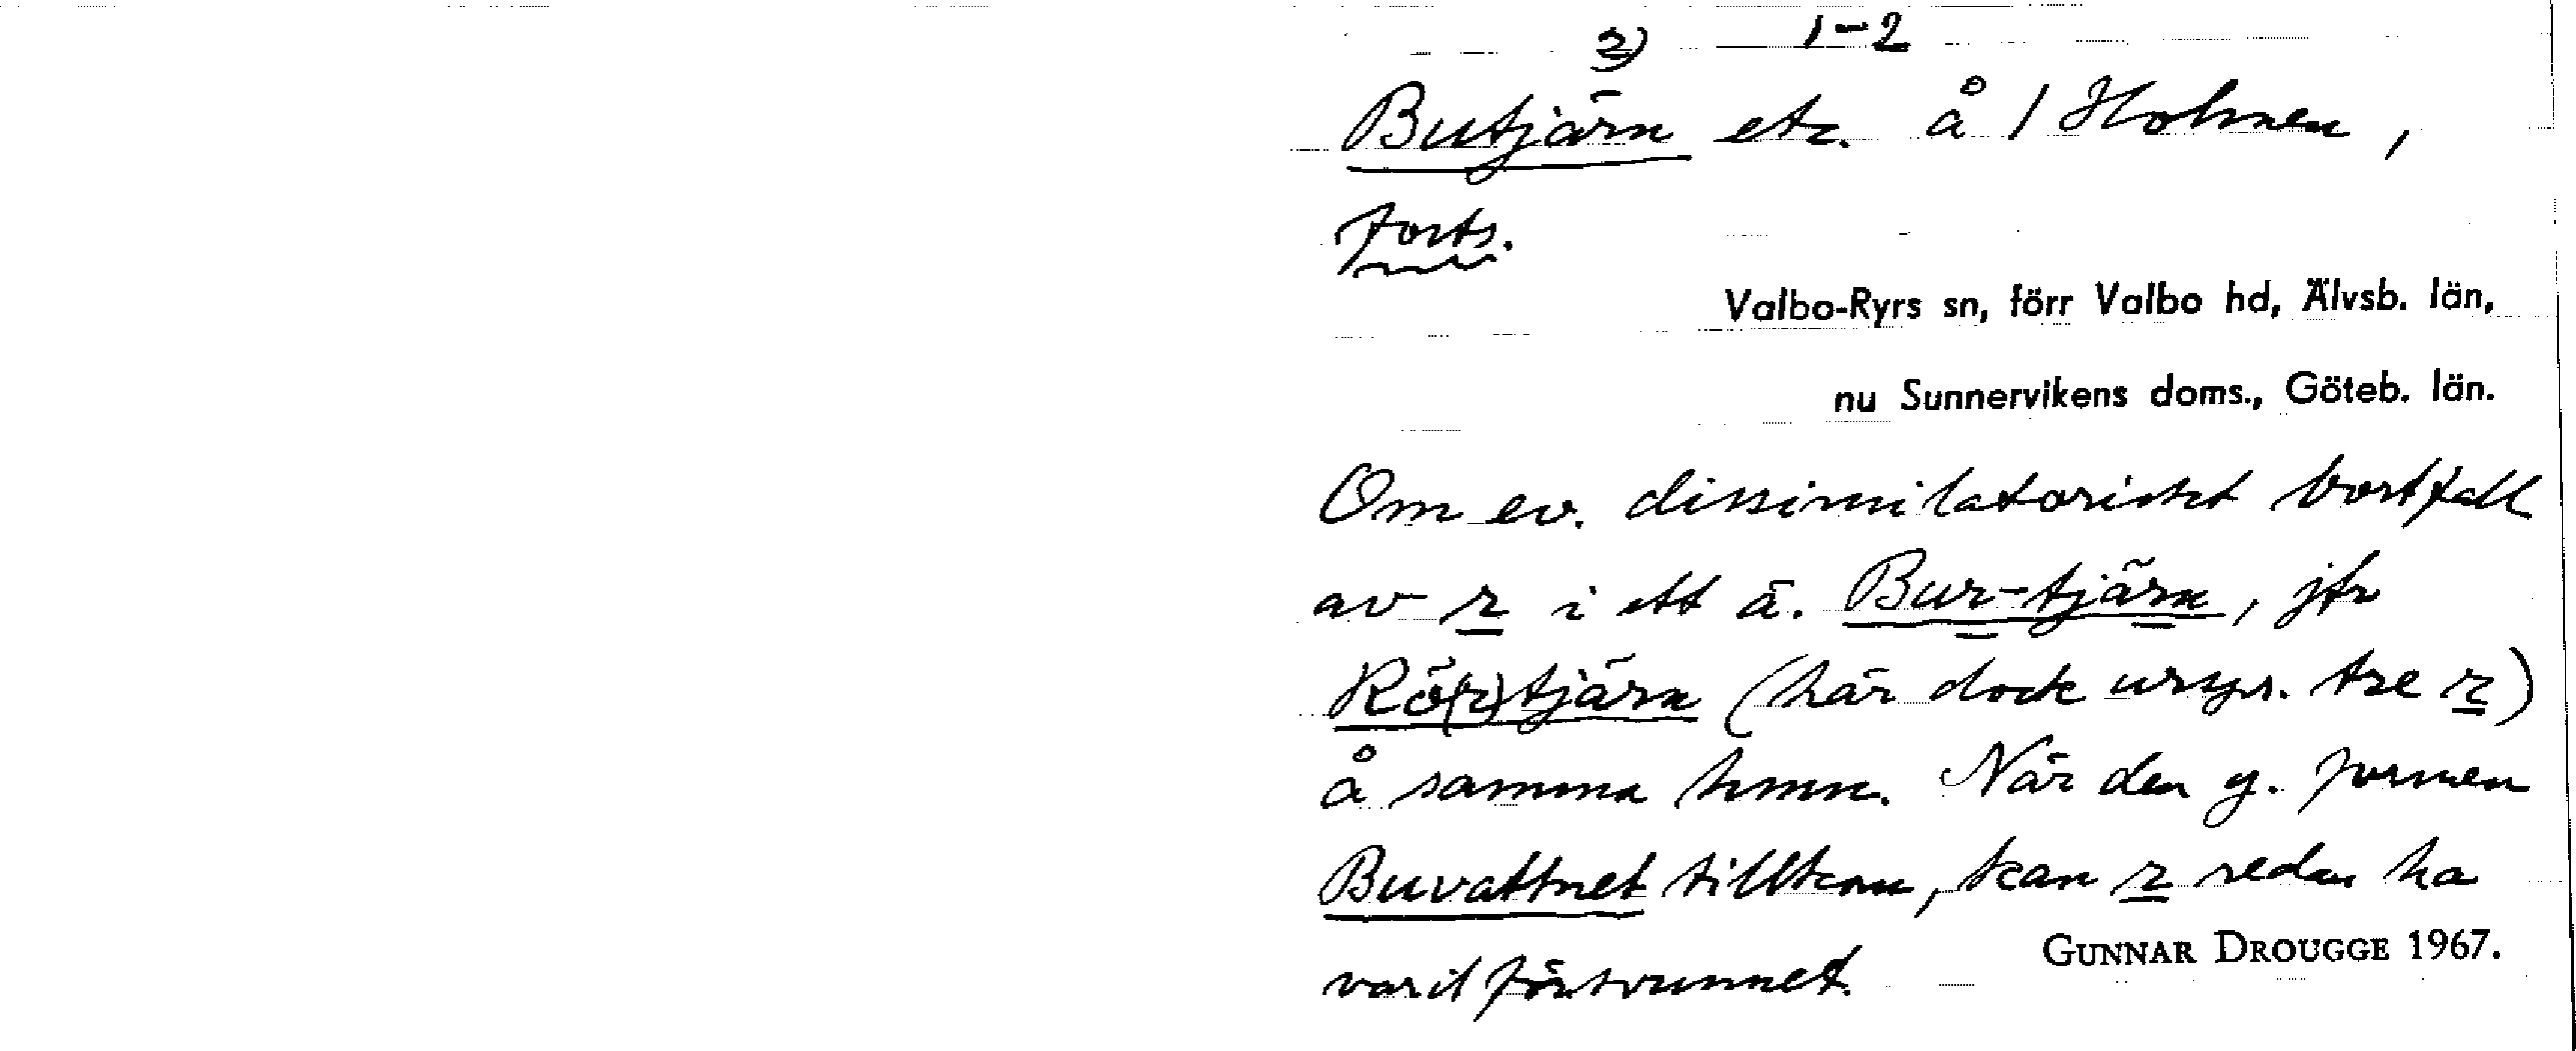 2) 1-2
Butjärn etc. å 1 Holmen,
forts.
Valbo-Ryrs sn, förr Valbo hd, Älvsb. län,
nu Sunnervikens doms., Göteb. län.
Om ev. dissimilatoriskt bortfall
av r i ett ä. Bur-tjärn, jfr
Rö(r)tjärn (här dock urspr. tre r)
å samma hmn. När den y. formen
Buvattnet tillkom, kan r redan ha
varit försvunnet.
GUNNAR DROUGGE 1967.